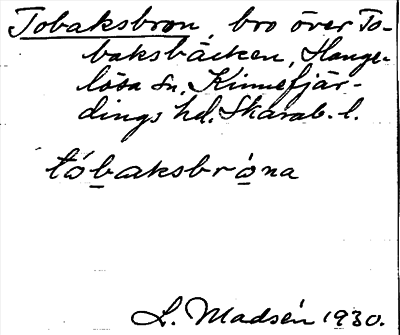 Tobaksbron, bro över To-
baksbäcken, Hange-
lösa sn. Kinnefjär-
dings hd. Skarab. l.
tóbaksbróna
L. Madsén 1930.